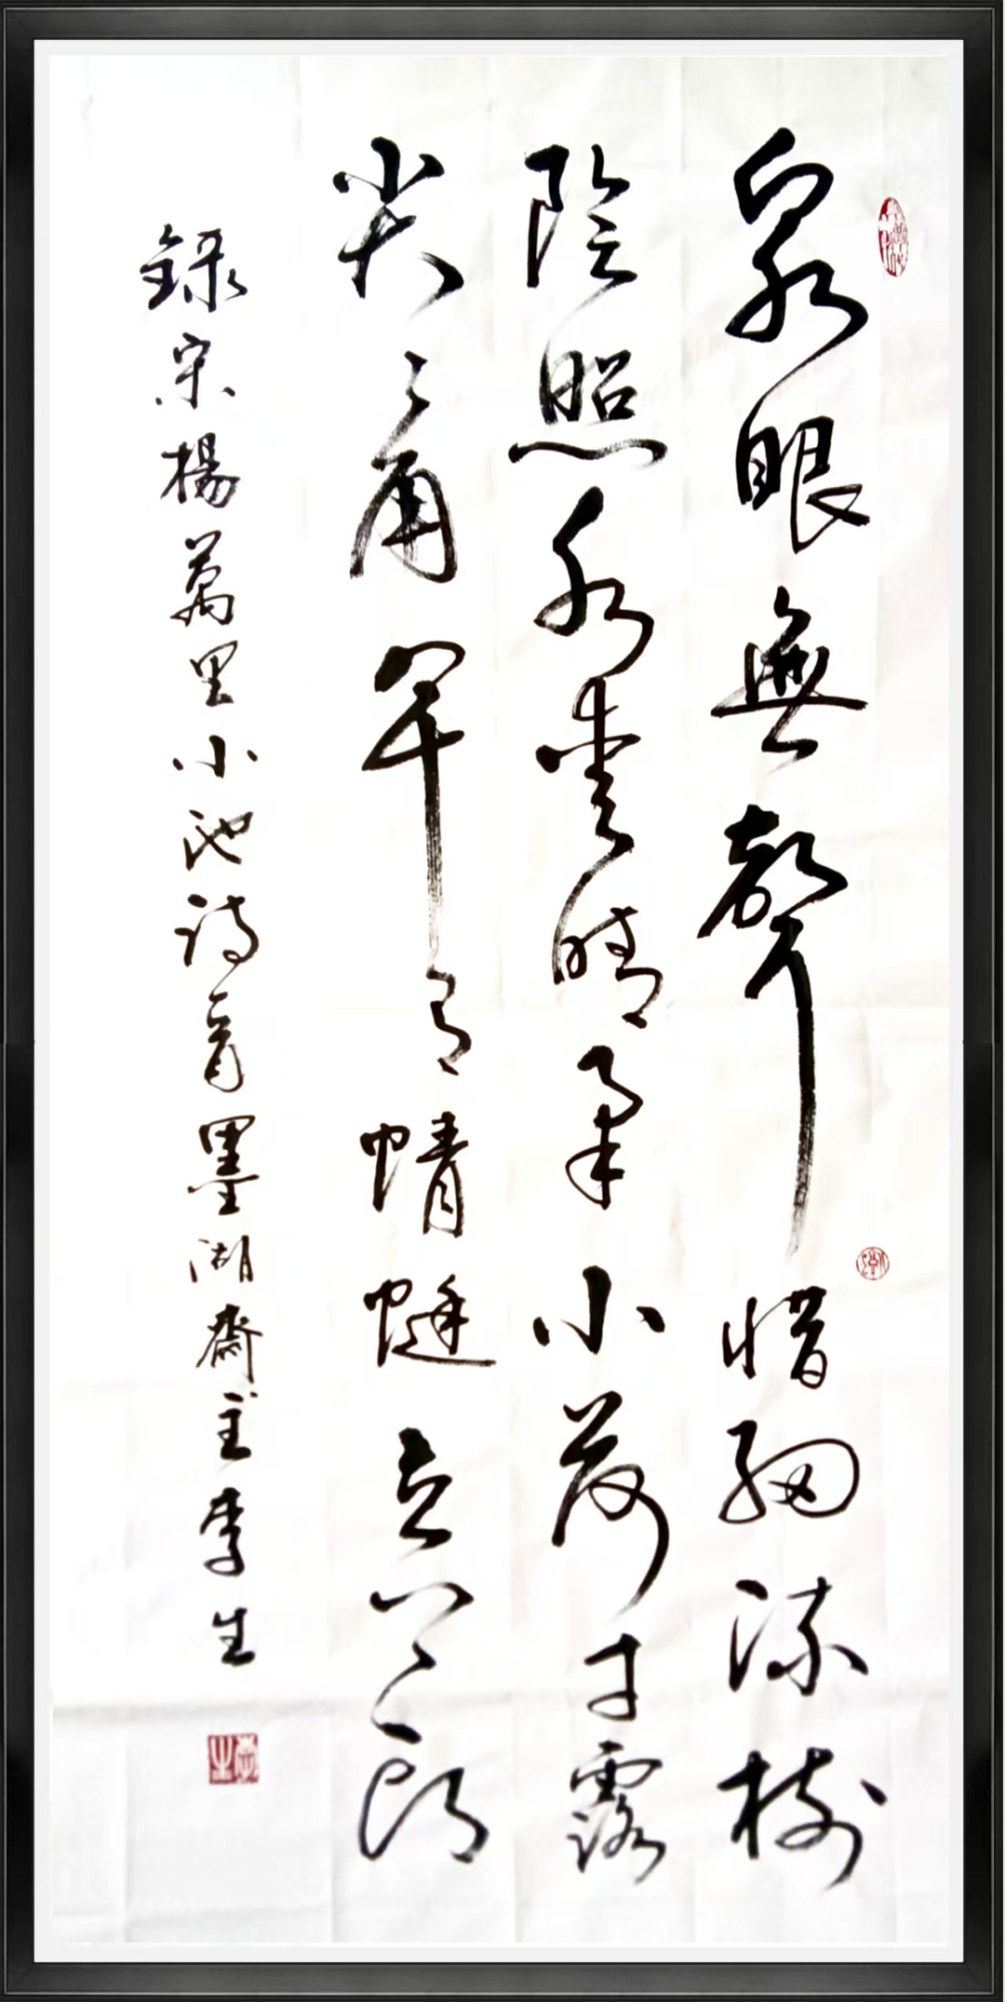 泉眼無聲惜細流樹
陰照水愛晴柔小荷才露
尖々角早有蜻蜓立上頭
錄宋楊萬里小池詩一首墨湖齋主李生
李生